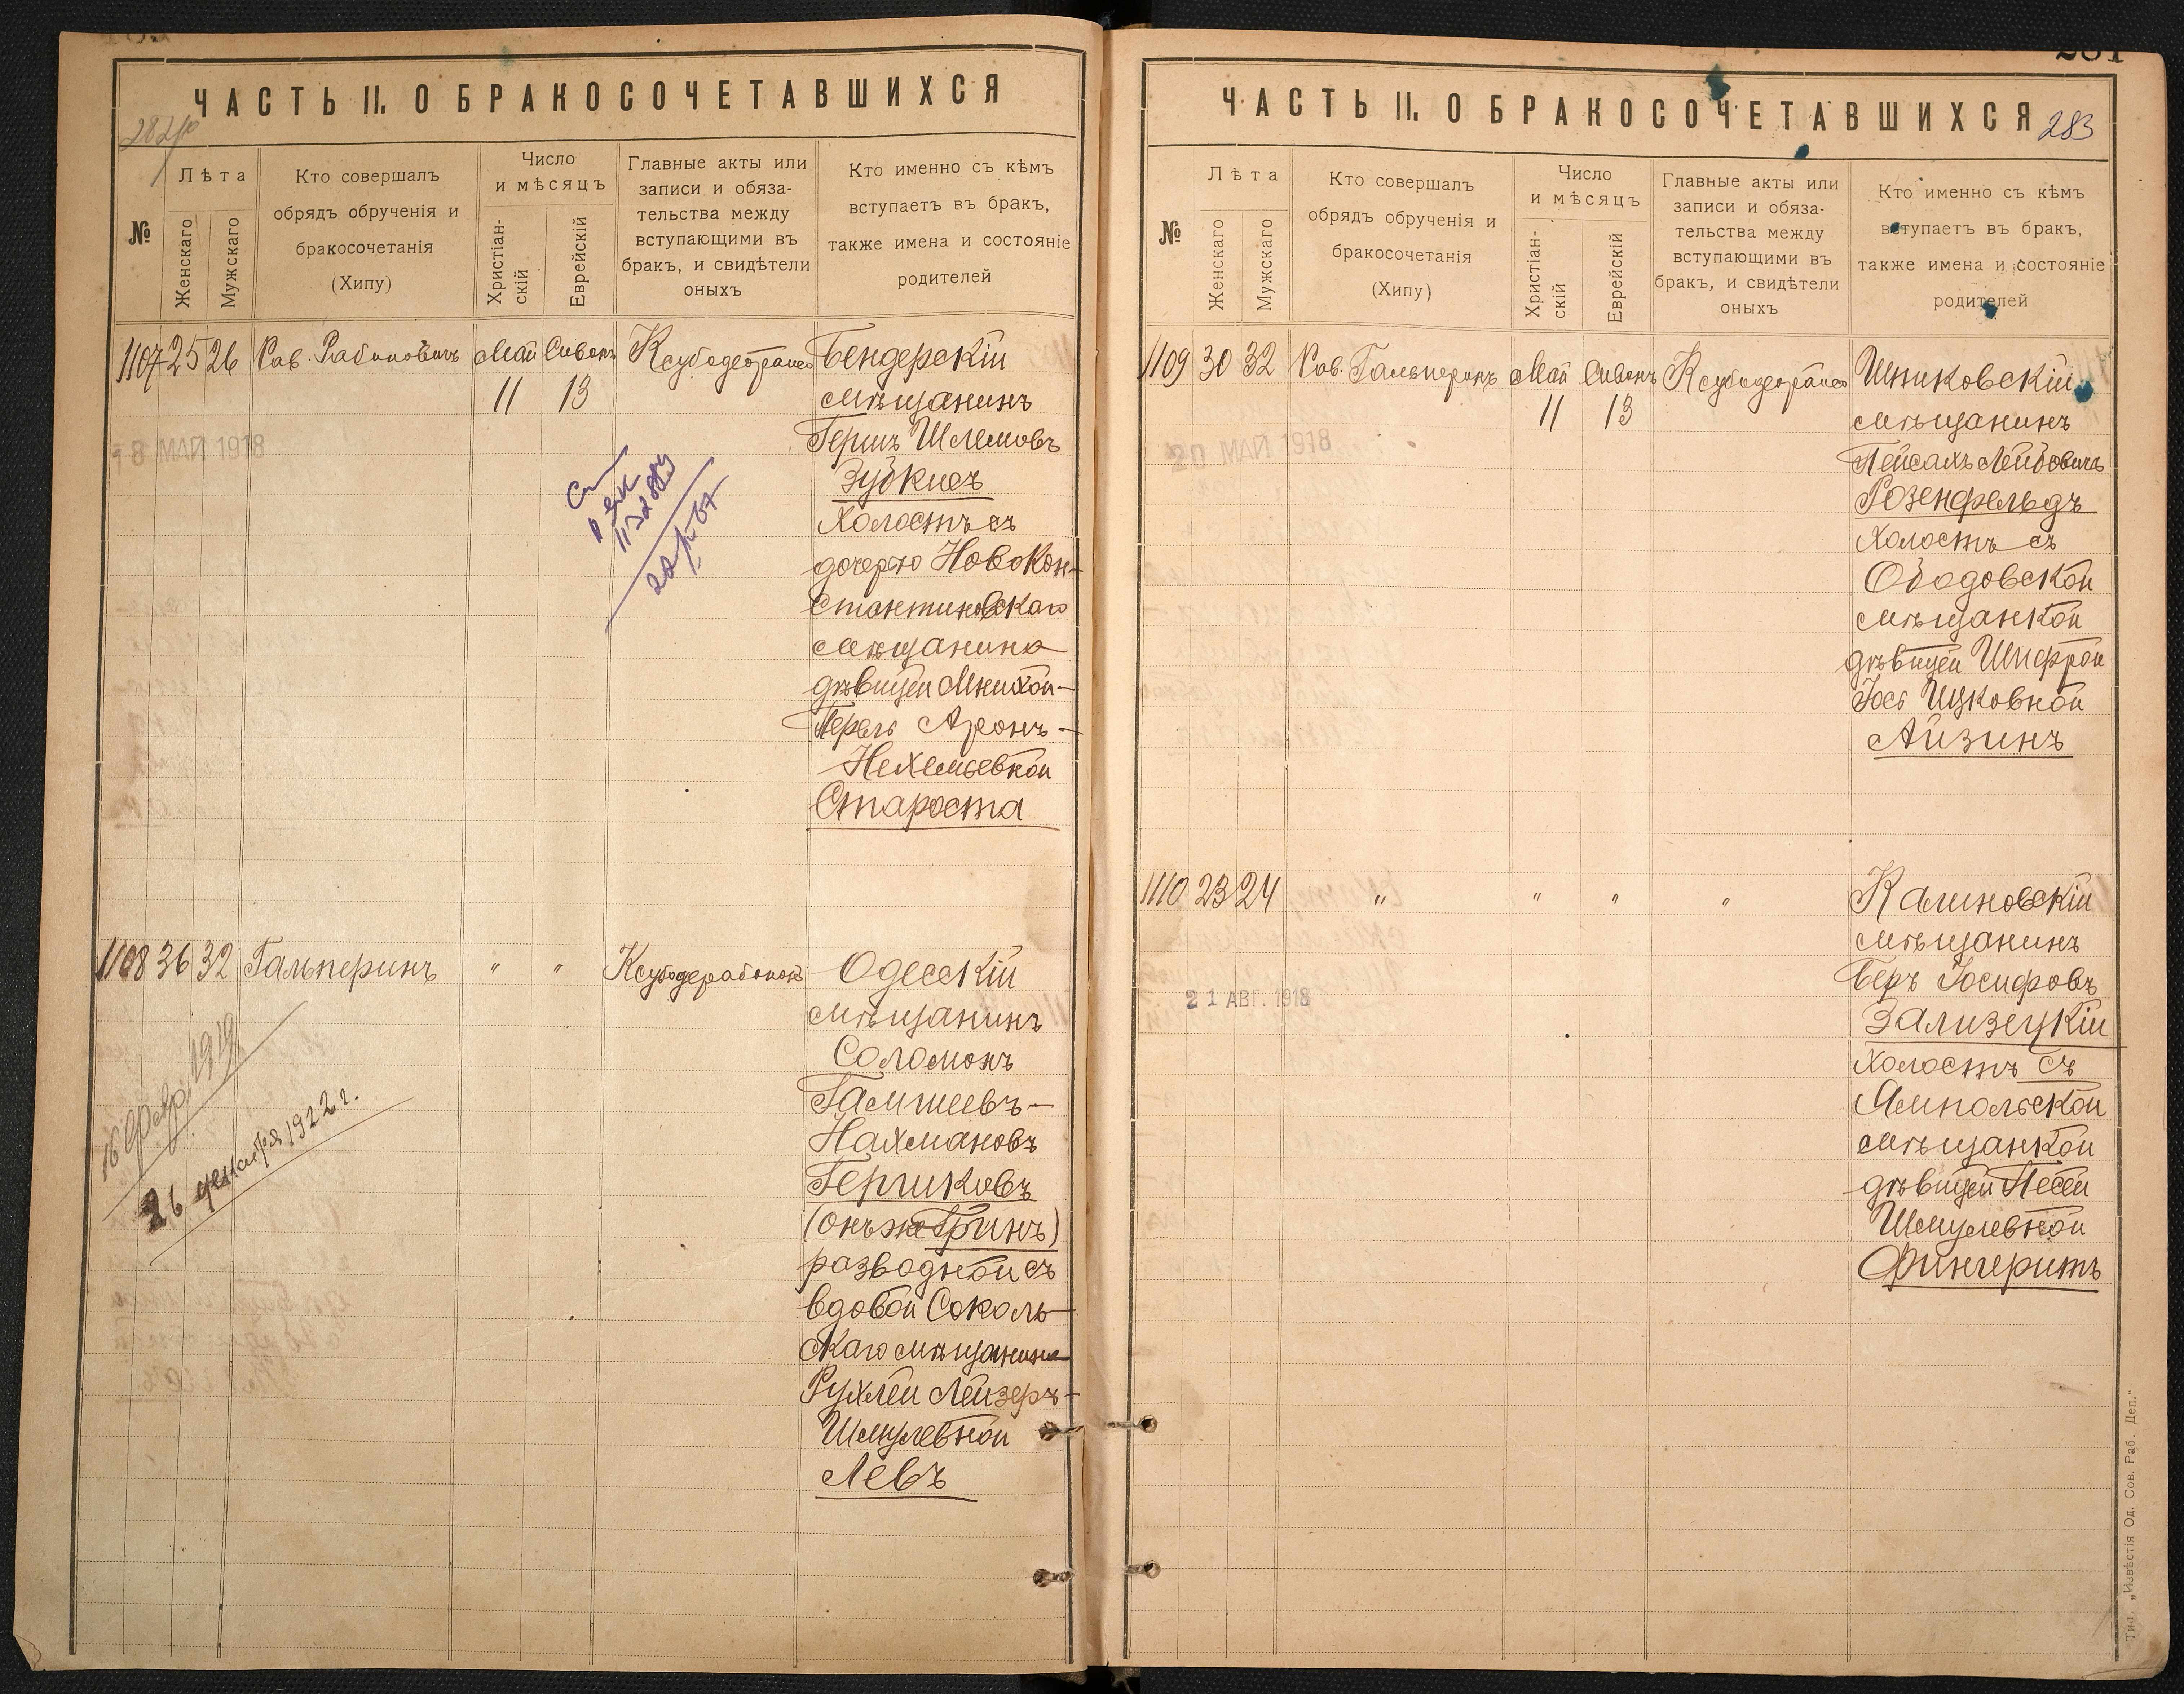 ЧАСТЬ II. О БРАКОСОЧЕТАВШИХСЯ
№
Лѣта
Женскаго
Мужскаго
Кто совершалъ
обрядъ обрученія и
бракосочетанія
(Хипу)
Число
и мѣсяцъ
Христіан-
скій
Еврейскій
Главные акты или
записи и обяза-
тельства между
вступающими въ
бракъ, и свидѣтели
оныхъ
Кто именно съ кѣмъ
вступаетъ въ бракъ,
также имена и состояніе
родителей
1107 25 26 Рав. Рабиновичъ Май Сиванъ
11 13
18 МАЙ 1918
Бендерскій
мѣщанинъ
Гершъ Шлемовъ
Зубкисъ
Холостъ съ
дочерью Новокон-
стантиновскаго
мѣщанина
дѣвицей Мнихой-
Перель Аронъ-
Нехемьевной
Староста
1108 36 32 Гальперинъ " "
16 февр. 1919
26 декабря 1922 г.
Одесскій
мѣщанинъ
Соломонъ
Гамшеевъ-
Нахмановъ
Гершковъ
(онъ же Гринъ)
разводной съ
вдовой Соколь-
скаго мѣщанина
Рухлей Лейзеръ-
Шмулевной
Левъ
ЧАСТЬ II. О БРАКОСОЧЕТАВШИХСЯ
283
№
Лѣта
Женскаго
Мужскаго
Кто совершалъ
обрядъ обрученія и
бракосочетанія
(Хипу)
Число
и мѣсяцъ
Христіан-
скій
Еврейскій
Главные акты или
записи и обяза-
тельства между
вступающими въ
бракъ, и свидѣтели
оныхъ
Кто именно съ кѣмъ
вступаетъ въ бракъ,
также имена и состояніе
родителей
1109 30 32 Рав. Гальперинъ Май Сиванъ
11 13
20 МАЙ 1918
мѣщанинъ
Пейсахъ Лейбовичъ
Розенфельдъ
Холостъ съ
Ободовской
мѣщанкой
дѣвицей Шифрой
Ицковной
Айзинъ
1110 23 24 " " " "
21 АВГ. 1918
Калиновскій
мѣщанинъ
Беръ Іосифовъ
Зализецкій
Холостъ съ
Ямпольской
мѣщанкой
дѣвицей Песей
Шмулевной
Фингеритъ
Тип. „Извѣстія Од. Сов. Раб. Деп."